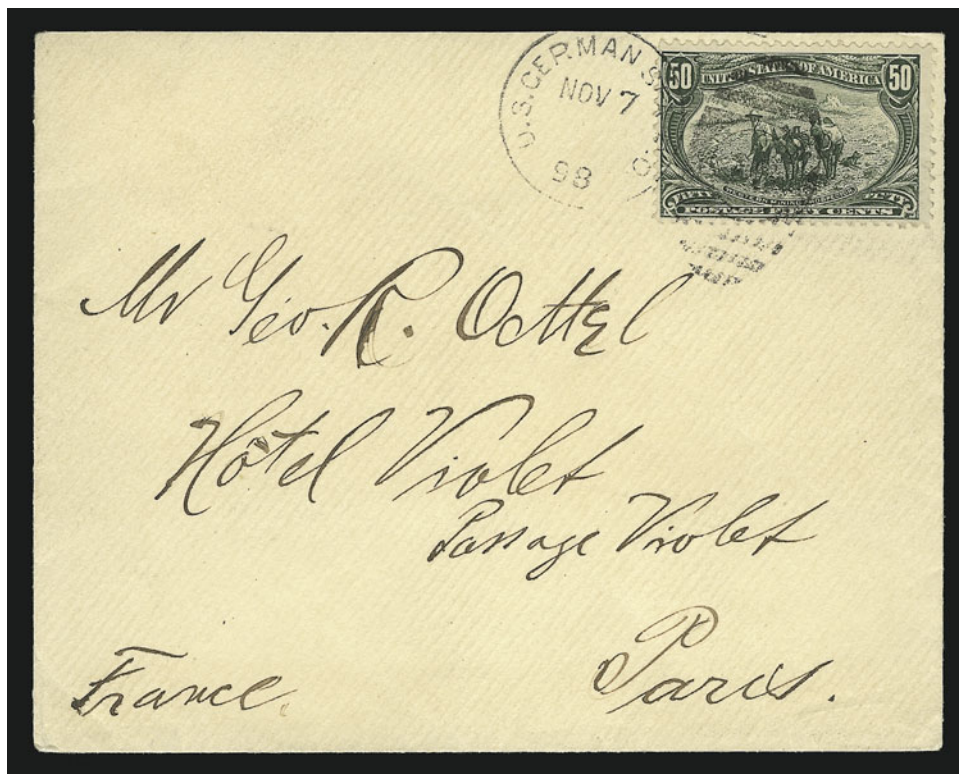 U.S. GERMAN S
NOV 7
98
50 UNITED STATES OF AMERICA 50
WESTERN MINING PROSPECTOR
FIFTY
POSTAGE FIFTY CENTS
Mr Geo. R. Oettel
Hôtel Violet
Passage Violet
Paris.
France.